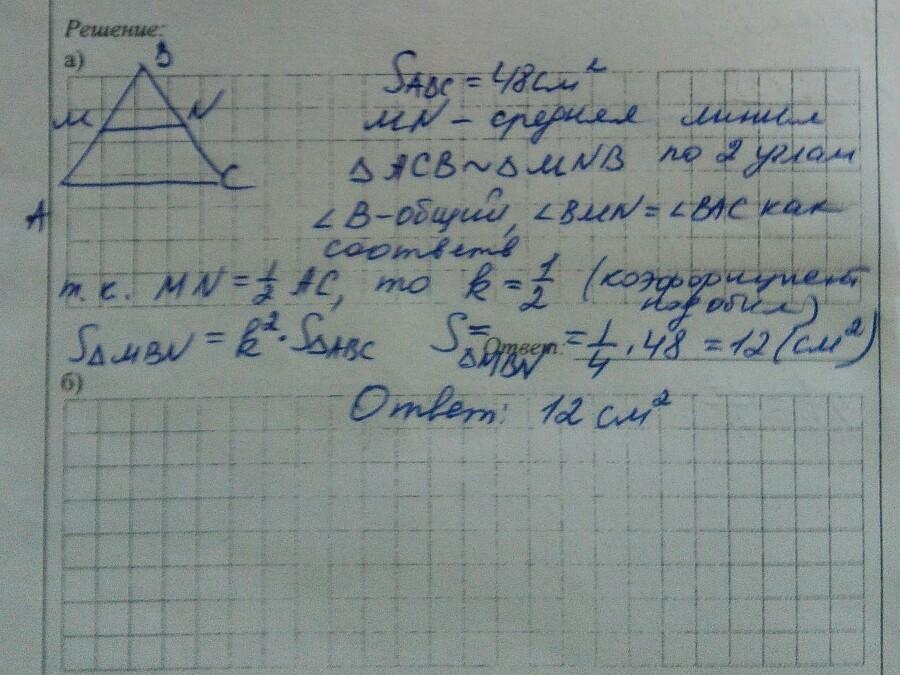 Решение:
а)
B
S_ABC = 48 см²
M N
MN - средняя линия
Δ ACB ~ Δ MNB по 2 углам
A C
∠B - общий, ∠BMN = ∠BAC как
соответств
т. к. MN = 1/2 AC, то k = 1/2 (коэффициент
подобия)
S_ΔMBN = k² · S_ΔABC S_ΔMBN = = 1/4 · 48 = 12 (см²)
Ответ:
б)
Ответ: 12 см²